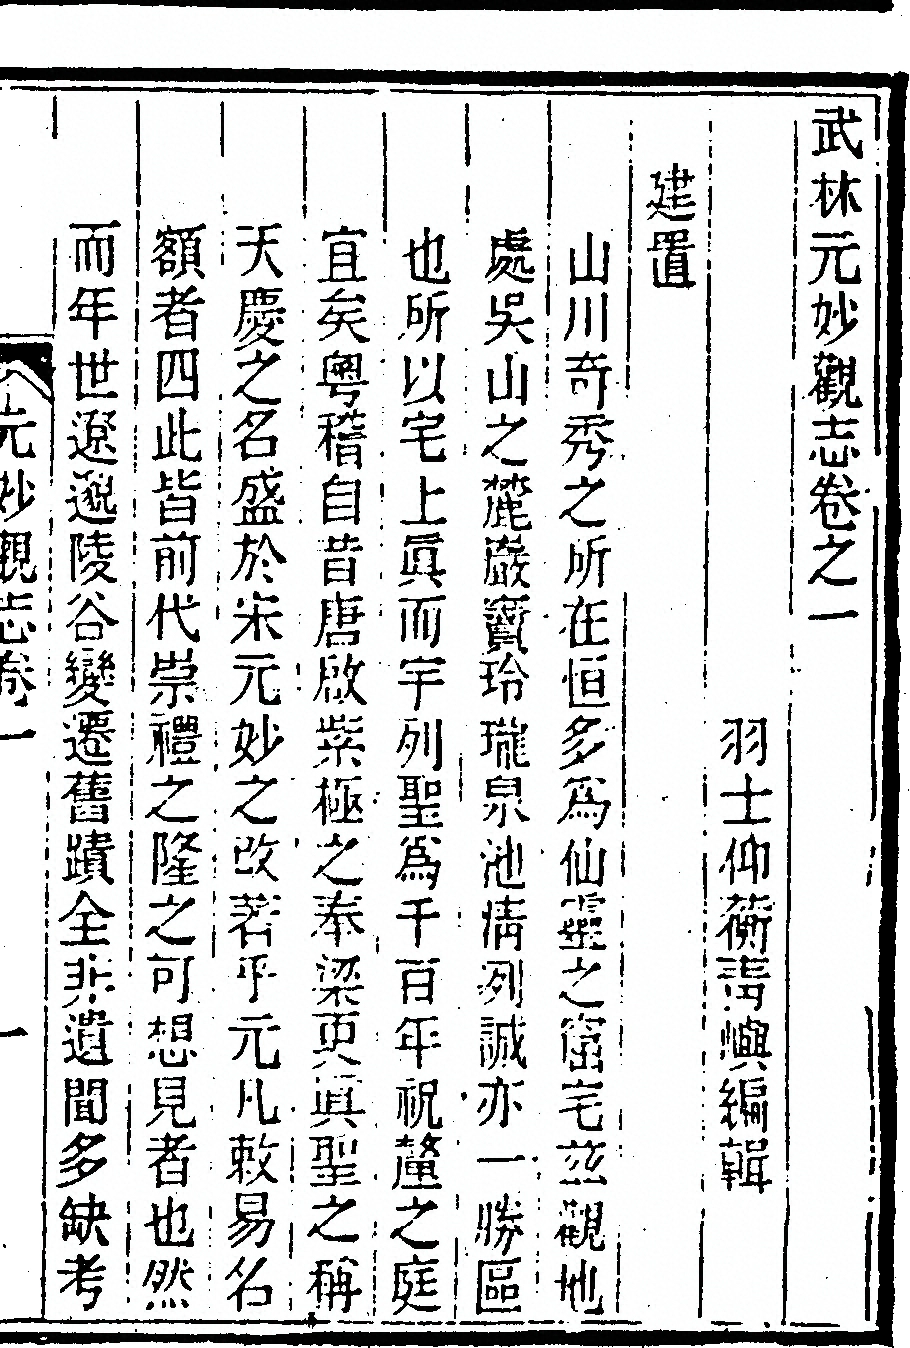 武林元妙觀志卷之一
羽士仰蘅靑嶼編輯
建置
山川奇秀之所在恒多爲仙靈之窟宅茲觀地
處吳山之麓巖竇玲瓏泉池淸列誠亦一勝區
也所以宅上眞而宇列聖爲千百年祝釐之庭
宜矣粵稽自昔唐啟紫極之奉梁更眞聖之稱
天慶之名盛於宋元妙之改著乎元凡敕易名
額者四此皆前代崇禮之隆之可想見者也然
而年世遼邈陵谷變遷舊蹟全非遺聞多缺考
元妙觀志卷一
一